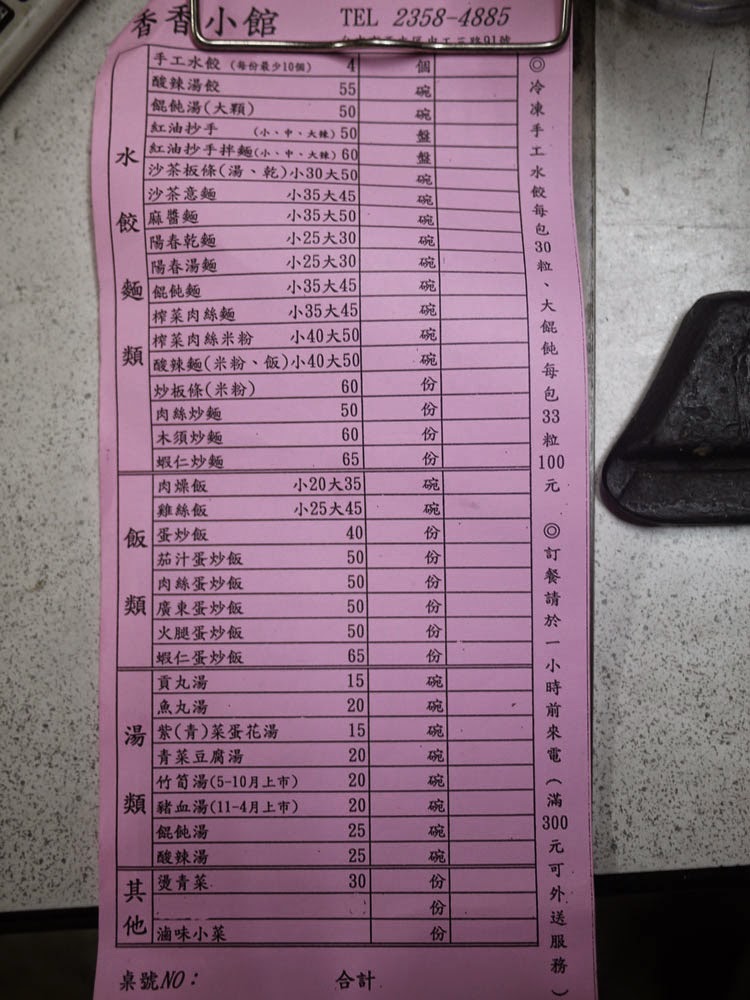 香香小館 TEL 2358-4885
水餃麵類
手工水餃(每份最少10個) 4 個
酸辣湯餃 55 碗
餛飩湯(大顆) 50 碗
紅油抄手 (小、中、大辣) 50 盤
紅油抄手拌麵(小、中、大辣) 60 盤
沙茶板條(湯、乾)小30大50 碗
沙茶意麵 小35大45 碗
麻醬麵 小35大50 碗
陽春乾麵 小25大30 碗
陽春湯麵 小25大30 碗
餛飩麵 小35大45 碗
榨菜肉絲麵 小35大45 碗
榨菜肉絲米粉 小40大50 碗
酸辣麵(米粉、飯)小40大50 碗
炒板條(米粉) 60 份
肉絲炒麵 50 份
木須炒麵 60 份
蝦仁炒麵 65 份
飯類
肉燥飯 小20大35 碗
雞絲飯 小25大45 碗
蛋炒飯 40 份
茄汁蛋炒飯 50 份
肉絲蛋炒飯 50 份
廣東蛋炒飯 50 份
火腿蛋炒飯 50 份
蝦仁蛋炒飯 65 份
湯類
貢丸湯 15 碗
魚丸湯 20 碗
紫(青)菜蛋花湯 15 碗
青菜豆腐湯 20 碗
竹筍湯(5-10月上市) 20 碗
豬血湯(11-4月上市) 20 碗
餛飩湯 25 碗
酸辣湯 25 碗
其他
燙青菜 30 份
份
滷味小菜 份
桌號NO： 合計
◎冷凍手工水餃每包30粒、大餛飩每包33粒100元 ◎訂餐請於一小時前來電(滿300元可外送服務)